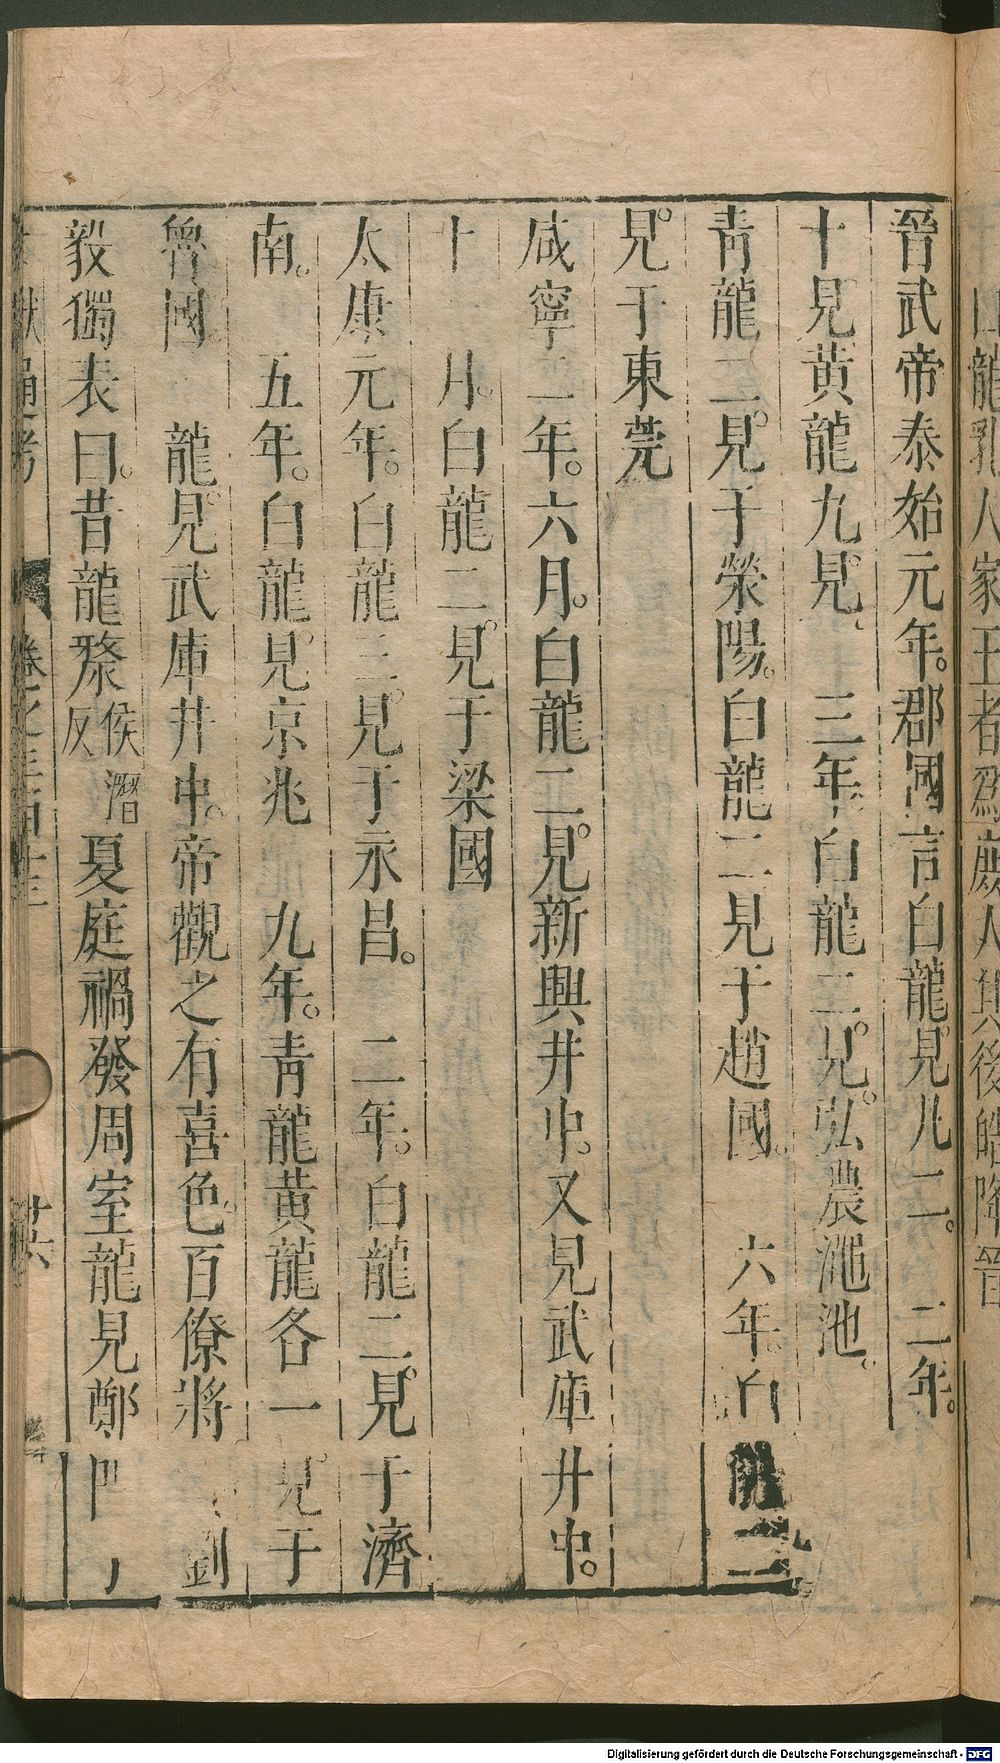 晉武帝泰始元年。郡國言白龍見凡二。　二年。
十見黃龍九見。　三年。白龍二見。弘農澠池。
靑龍二。見于滎陽。白龍二見于趙國。　六年。白龍二
見于東莞
咸寧二年。六月。白龍二見新興井中。又見武庫井中。
十　月。白龍二見于梁國
太康元年。白龍三。見于永昌。　二年。白龍二見于濟
南。　五年。白龍見京兆　九年。靑龍黃龍各一見于
魯國　龍見武庫井中。帝觀之有喜色。百僚將　劉
毅獨表曰。昔龍漦侯潛反夏庭禍發周室龍見鄭門
獻通考　卷之三百十三　廿六
龍孔人家王者爲　人其後皓降晉
Digitalisierung gefördert durch die Deutsche Forschungsgemeinschaft - DFG